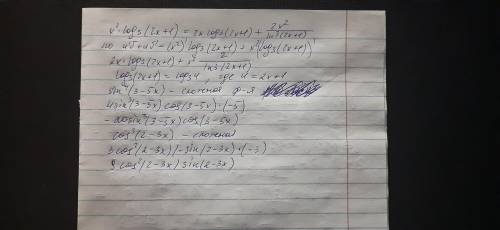 x² · log₃(2x+1) = 2x log₃(2x+1) + 2x²/ln3(2x+1)
по u'v + uv' = (x²)' log₃(2x+1) + x² (log₃(2x+1))'
2x · log₃(2x+1) + x² · 2/ln3(2x+1)
log₃(2x+1) = log₃u, где u = 2x+1
sin⁴(3-5x) - сложной ф-я
4 sin³(3-5x) cos(3-5x) · (-5)
-20 sin³(3-5x) cos(3-5x)
cos³(2-3x) - сложной
3 cos²(2-3x) (-sin(2-3x) · (-3)
9 cos²(2-3x) sin(2-3x)